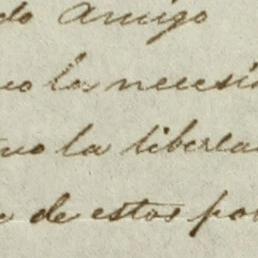 do Amigo
uo la necesi
tuo la liberta
e de estos po